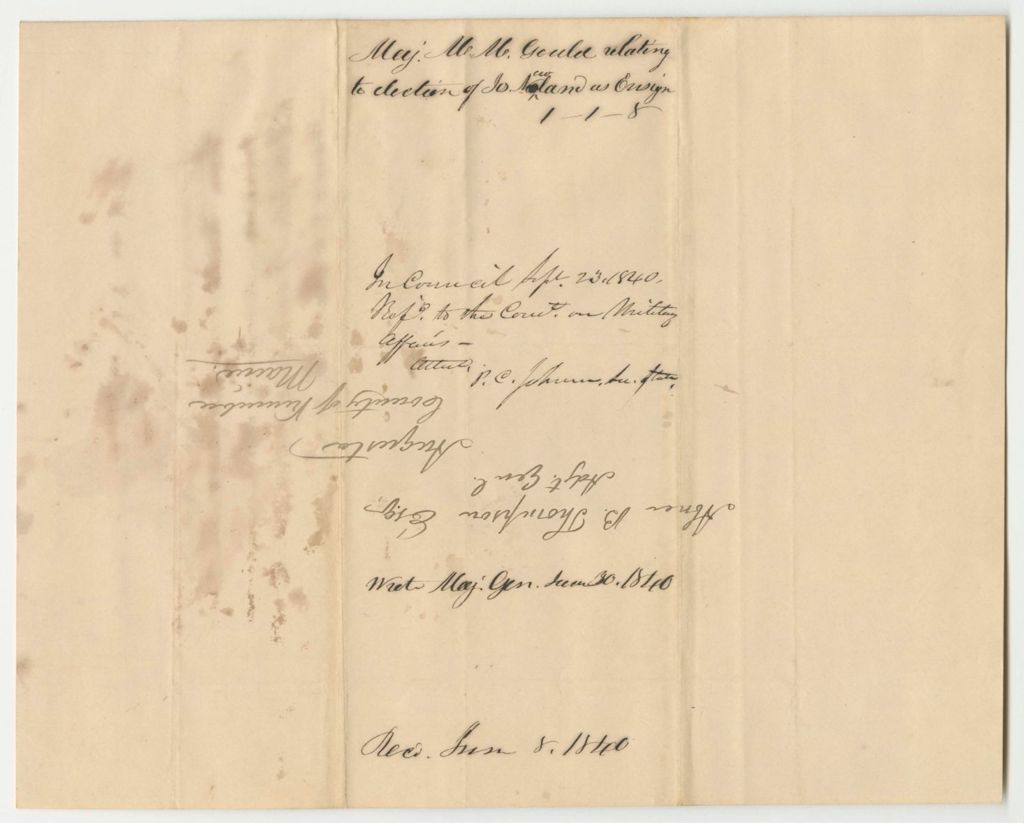 Maj. M. M. Gould relating
to election of Jo. Noland as Ensign
1-1-8
In Council Sept. 23. 1840.
Ref'd. to the Com't. on Military
Affairs -
Attest,
P. C. Johnson, Sec. of State.
Abner B. Thompson Esq.
Adjt. Genl.
Augusta
County of Kennebec
Maine.
Wrote Maj. Gen. June 30. 1840
Recd. June 8. 1840